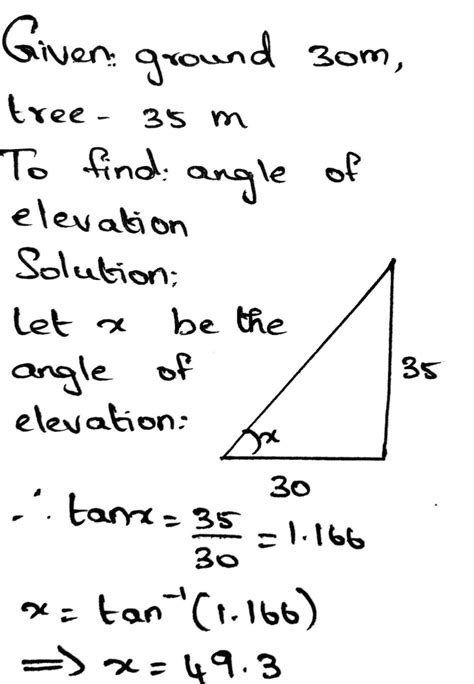 Given: ground 30m,
tree - 35 m
To find: angle of
elevation
Solution:
Let x be the
angle of
elevation:
x
35
30
∴ tanx = 35/30 = 1.166
x = tan⁻¹(1.166)
⟹ x = 49.3